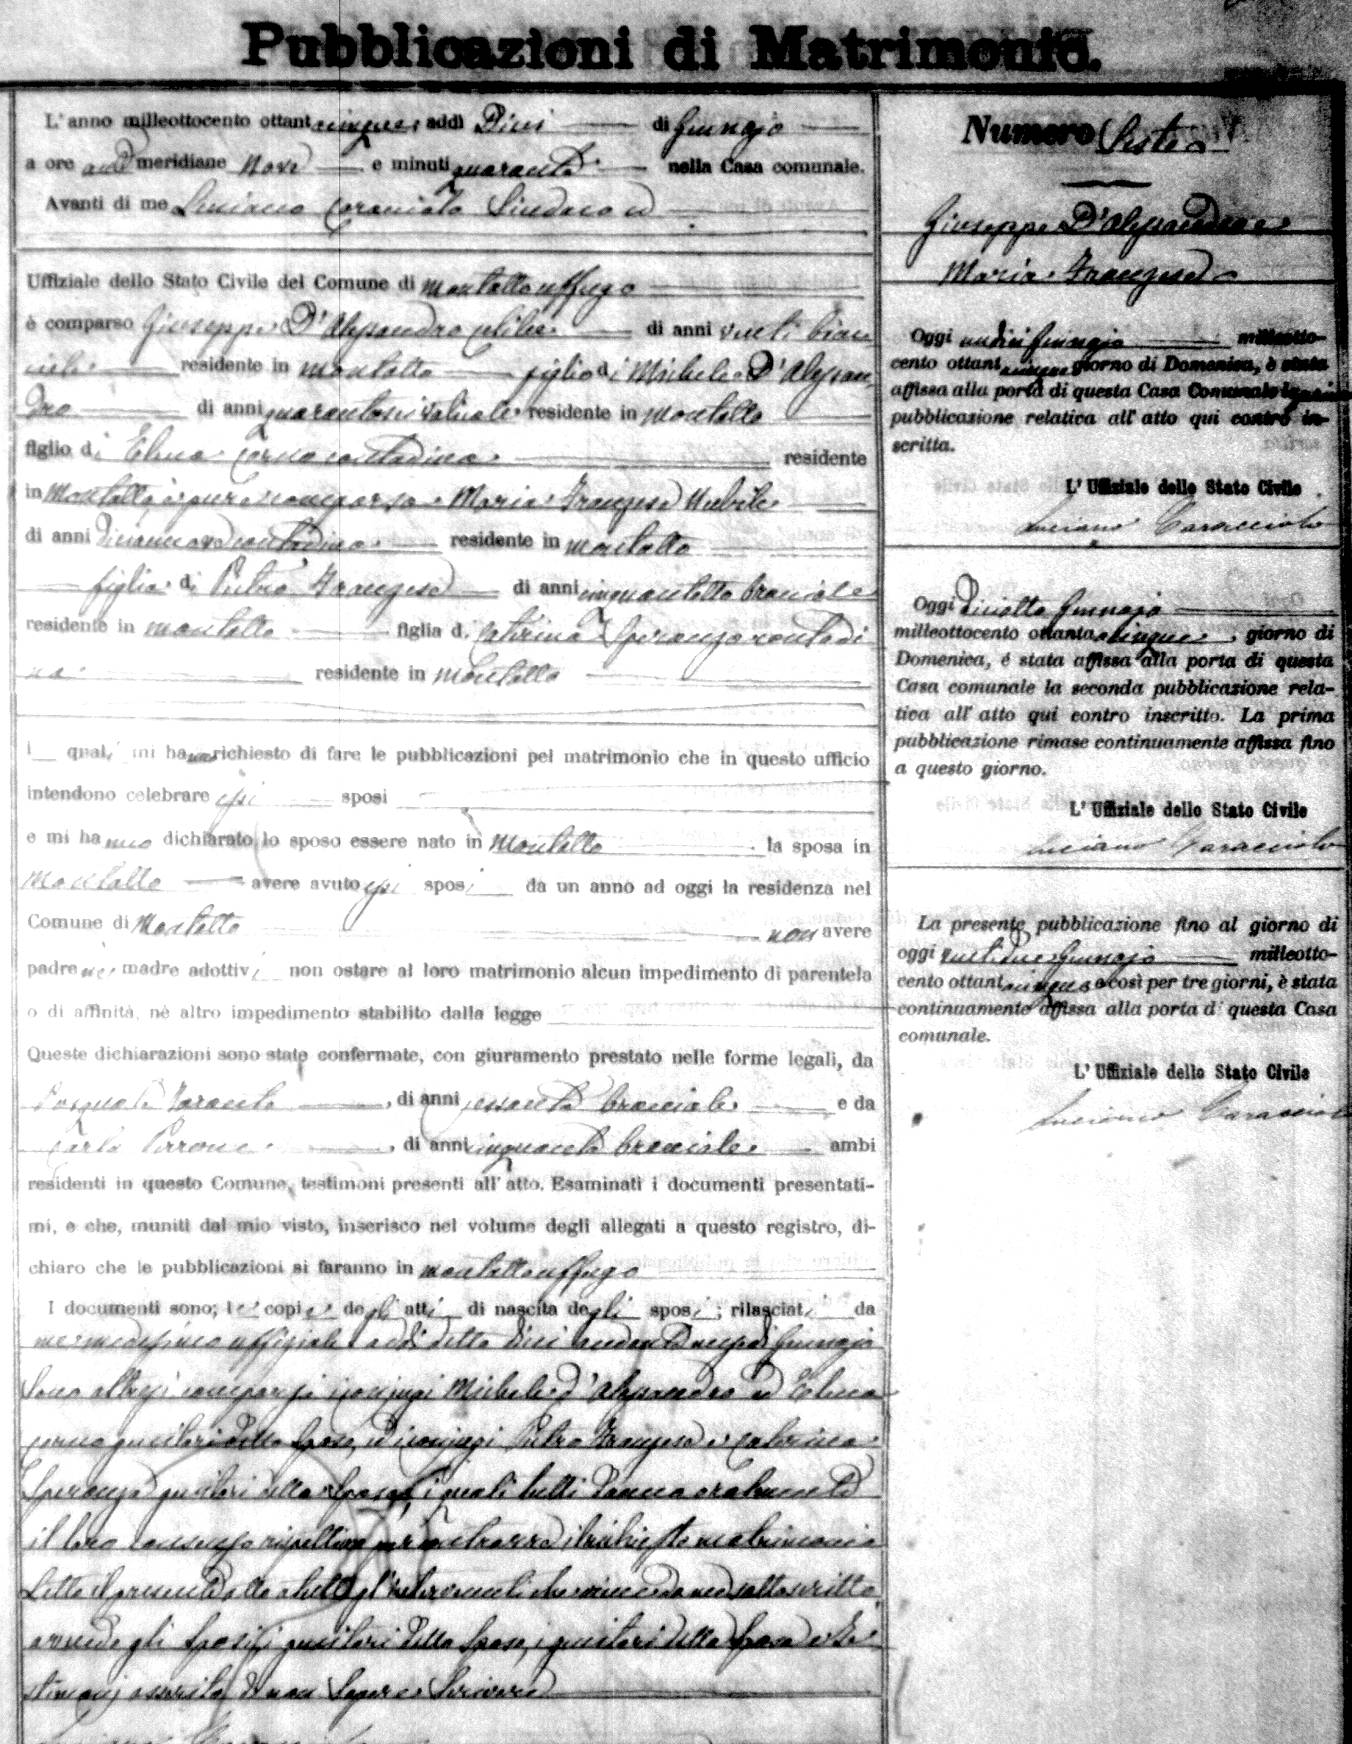 Pubblicazioni di Matrimonio.
L'anno milleottocento ottantacinque addì Dieci di Gennajo
a ore anti meridiane Nove e minuti quaranta nella Casa comunale.
Avanti di me Luciano Caracciolo Sindaco ed
Uffiziale dello Stato Civile del Comune di Montalto uffugo
è comparso Giuseppe D'Alessandro celibe di anni venti brac
ciale residente in Montalto figlio di Michele D'Alessan
dro di anni quarantasei residente in Montalto
figlio di Elena contadina residente
in Montalto è pure comparsa Maria Franzese Nubile
di anni diciannove contadina residente in Montalto
figlia di Pietro Franzese di anni cinquantotto bracciale
residente in Montalto figlia di Caterina Speranza contadi
na residente in Montalto
i quali mi hanno richiesto di fare le pubblicazioni pel matrimonio che in questo ufficio
intendono celebrare essi sposi
e mi hanno dichiarato lo sposo essere nato in Montalto la sposa in
Montalto avere avuto essi sposi da un anno ad oggi la residenza nel
Comune di Montalto non avere
padre nè madre adottivi non ostare al loro matrimonio alcun impedimento di parentela
o di affinità, nè altro impedimento stabilito dalla legge
Queste dichiarazioni sono state confermate, con giuramento prestato nelle forme legali, da
Pasquale di anni sessanta bracciale e da
Carlo Perrone, di anni cinquanta bracciale ambi
residenti in questo Comune, testimoni presenti all'atto. Esaminati i documenti presentati-
mi, e che, muniti dal mio visto, inserisco nel volume degli allegati a questo registro, di-
chiaro che le pubblicazioni si faranno in Montalto uffugo
I documenti sono; le copie degli atti di nascita degli sposi; rilasciati da
me medesimo uffiziale addì detto dieci andante mese di Gennajo
Sono altresì comparsi i conjugi Michele d'Alessandro ed Elena
genitori dello Sposo, ed i conjugi Pietro Franzese e Caterina
Speranza genitori della Sposa, i quali tutti danno oralmente
il loro consenso rispettivo per contrarre il richiesto matrimonio
Letto il presente atto a tutti gl'intervenuti che viene da me sottoscritto
avendo gli Sposi, i genitori dello Sposo, i genitori della Sposa e te
stimonj asserito di non Sapere Scrivere
Numero Sette
Giuseppe D'Alessandro e
Maria Franzese
Oggi undici Gennajo milleotto-
cento ottantacinque giorno di Domenica, è stata
affissa alla porta di questa Casa Comunale la prima
pubblicazione relativa all'atto qui contro in-
scritta.
L'Uffiziale dello Stato Civile
Luciano Caracciolo
Oggi Diciotto Gennajo
milleottocento ottantacinque, giorno di
Domenica, é stata affissa alla porta di questa
Casa comunale la seconda pubblicazione rela-
tiva all'atto qui contro inscritto. La prima
pubblicazione rimase continuamente affissa fino
a questo giorno.
L'Uffiziale dello Stato Civile
Luciano Caracciolo
La presente pubblicazione fino al giorno di
oggi ventidue Gennajo milleotto-
cento ottantacinque e così per tre giorni, è stata
continuamente affissa alla porta di questa Casa
comunale.
L'Uffiziale dello Stato Civile
Luciano Caracciolo